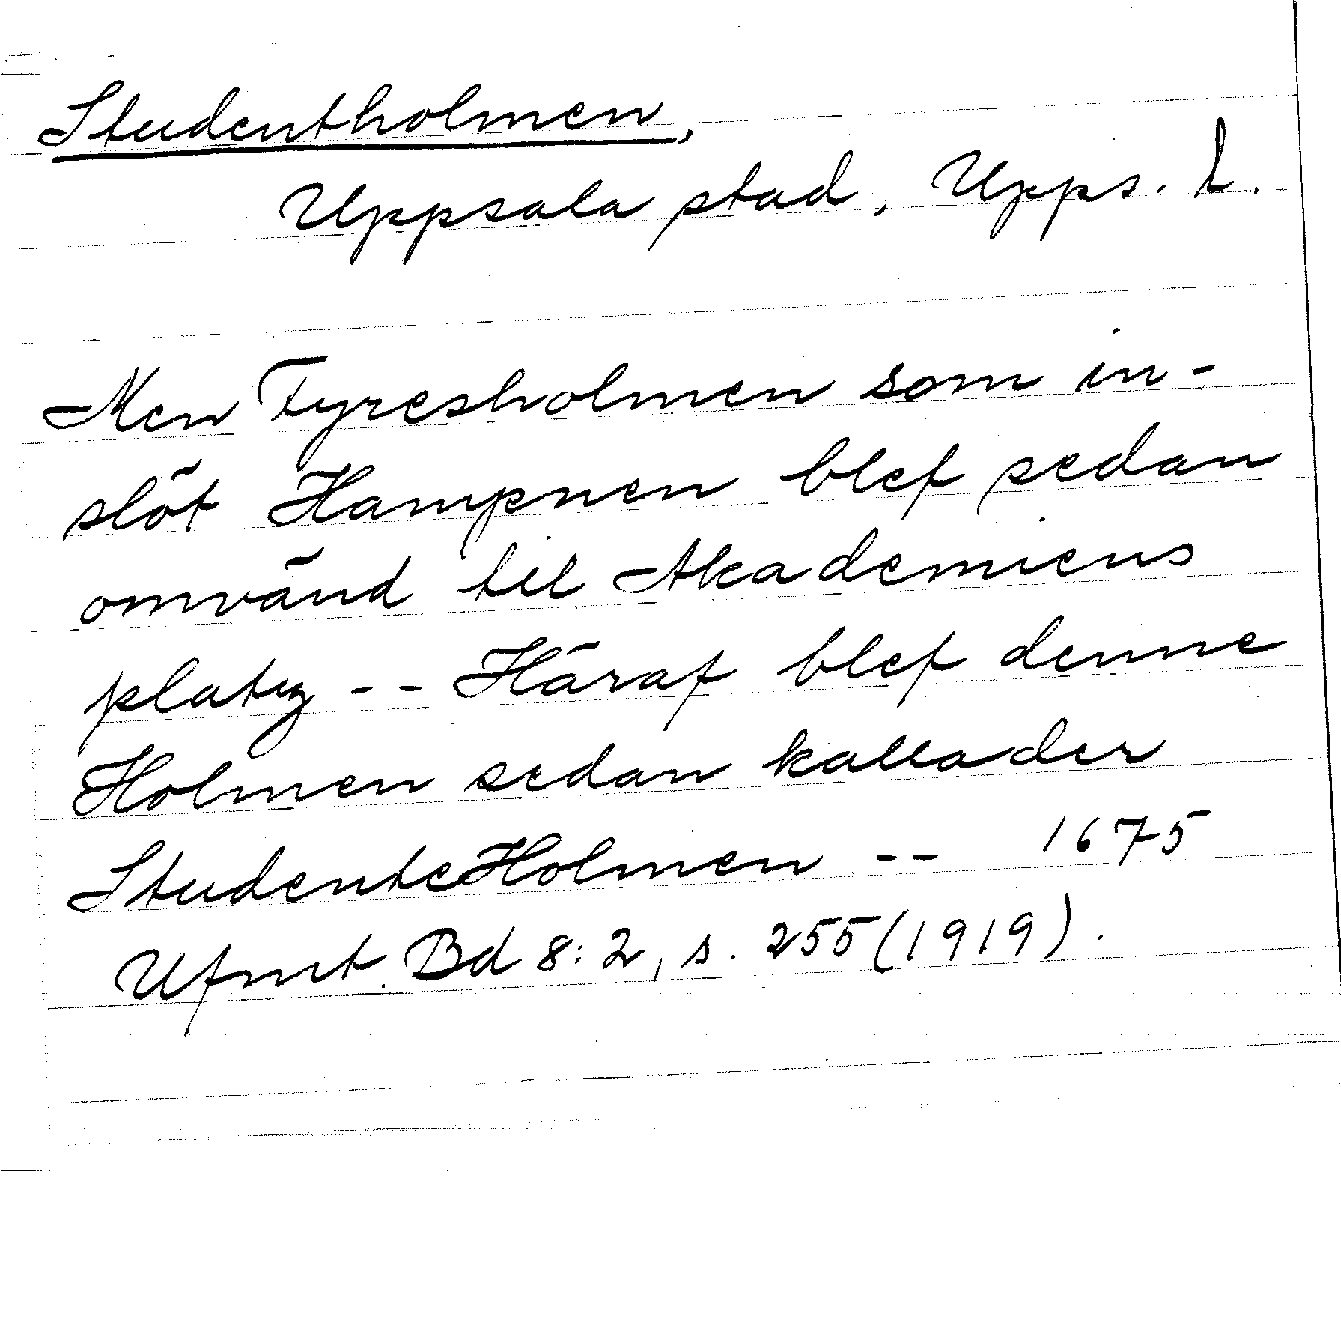 Studentholmen,
Uppsala stad, Upps. l.
Men Fyresholmen som in-
slöt Hampnen blef sedan
omvänd til Akademiens
platz -- Häraf blef denne
Holmen sedan kallader
StudenteHolmen -- 1675
Ufmt. Bd 8:2, s. 255 (1919).